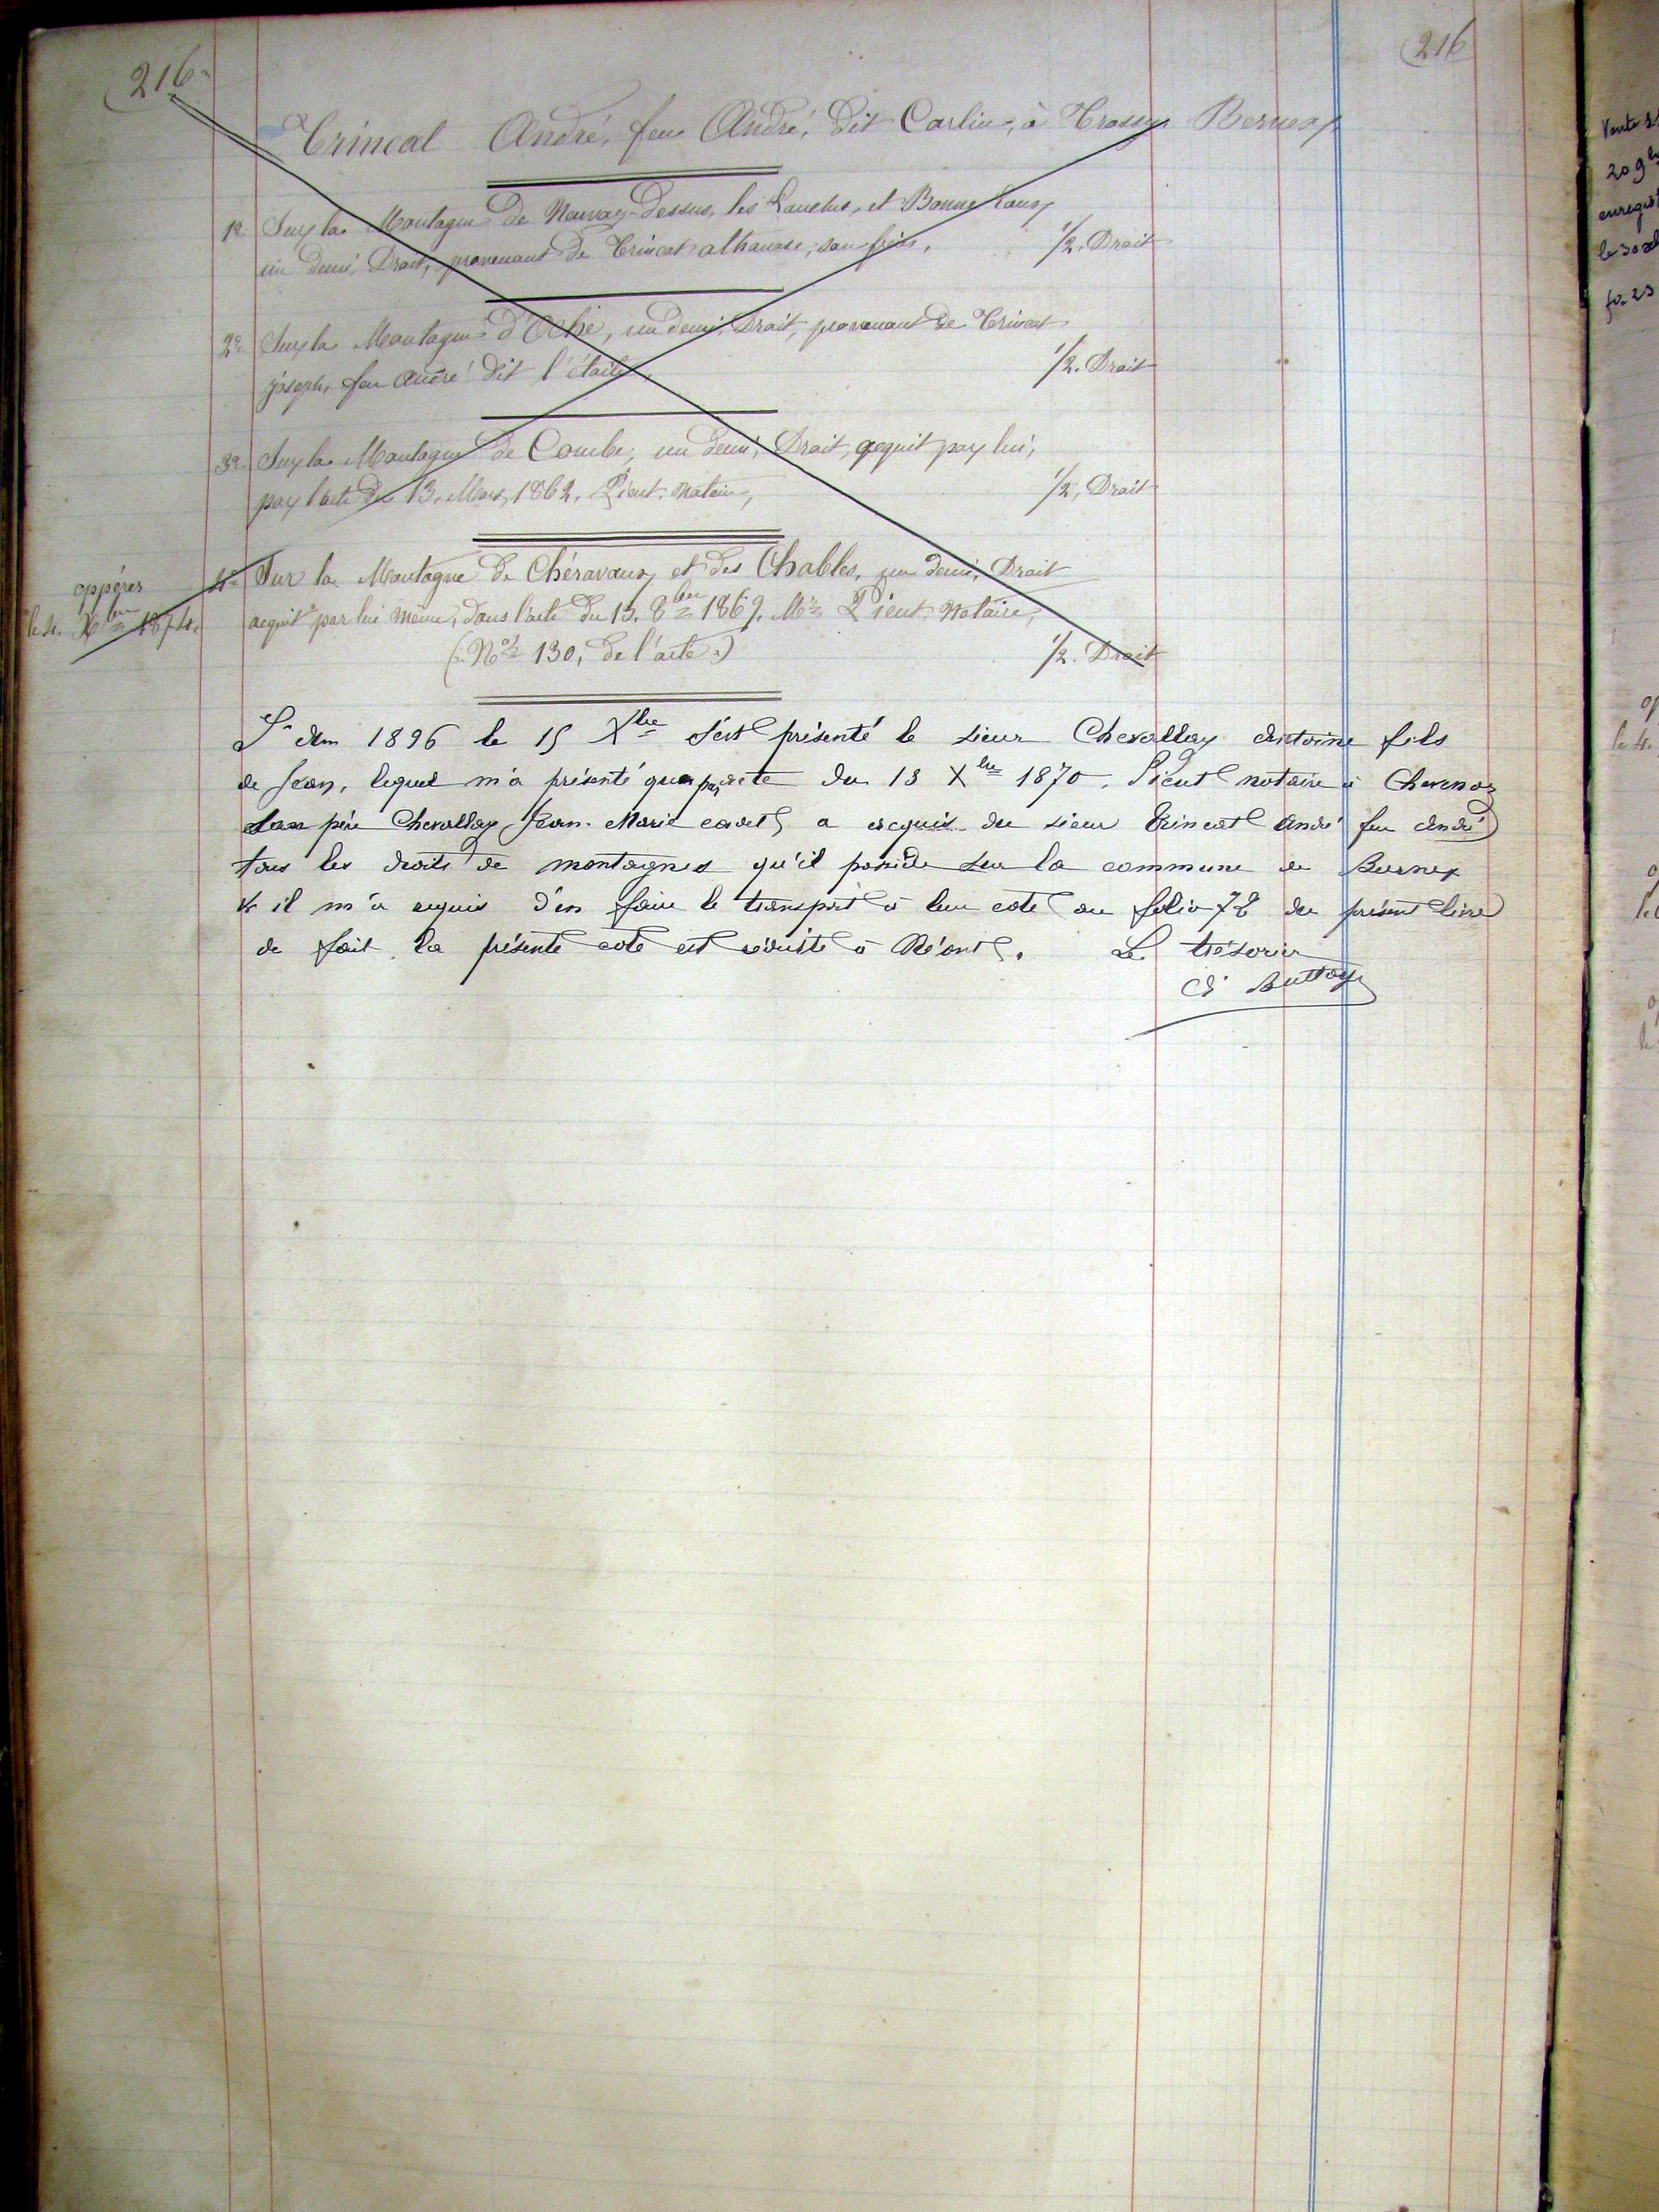 216.
216
Trincat André, feu André, dit Carlin, à Trossy Bernex
1º Sur la Montagne de Neuvaz-Dessus, les Lanches, et Bonne Eaux,
un demi, Droit, provenant de Trincat athanase, son frère, 1/2, Droit
2º Sur la Montagne d'Oche, un demi Droit, provenant de Trincat
joseph, feu André dit l'étaile, 1/2. Droit
3º Sur la Montagne de Combe, un demi, Droit, acquit par lui,
par l'acte du 13, Mars, 1862, Pieut, Notaire, 1/2, Droit
oppérer
le 4. Xbre 1874.
4º Sur la Montagne de Chéravaux, et des Chables, un demi, Droit
acquit par lui même, dans l'acte du 15. 8bre 1869. Me Pieut Notaire,
(Nº 130, de l'acte) 1/2. Droit
L'dem 1896 le 15 Xbre s'est présenté le sieur Chevallay Antoine fils
de Jean, lequel m'a présenté que par acte du 18 Xbre 1870, Pieut notaire à Chevenoz
son père Chevallay Jean-Marie cadet, a acquis du sieur Trincat André feu André
tous les droits de montagnes qu'il possède sur la commune de Bernex
& il m'a requis d'en faire le transport à leur cote au folio 72 du présent livre
de fait, la présente cote est réduite à Néant. Le trésorier
Buttay
Vente
enregist
fo. 23